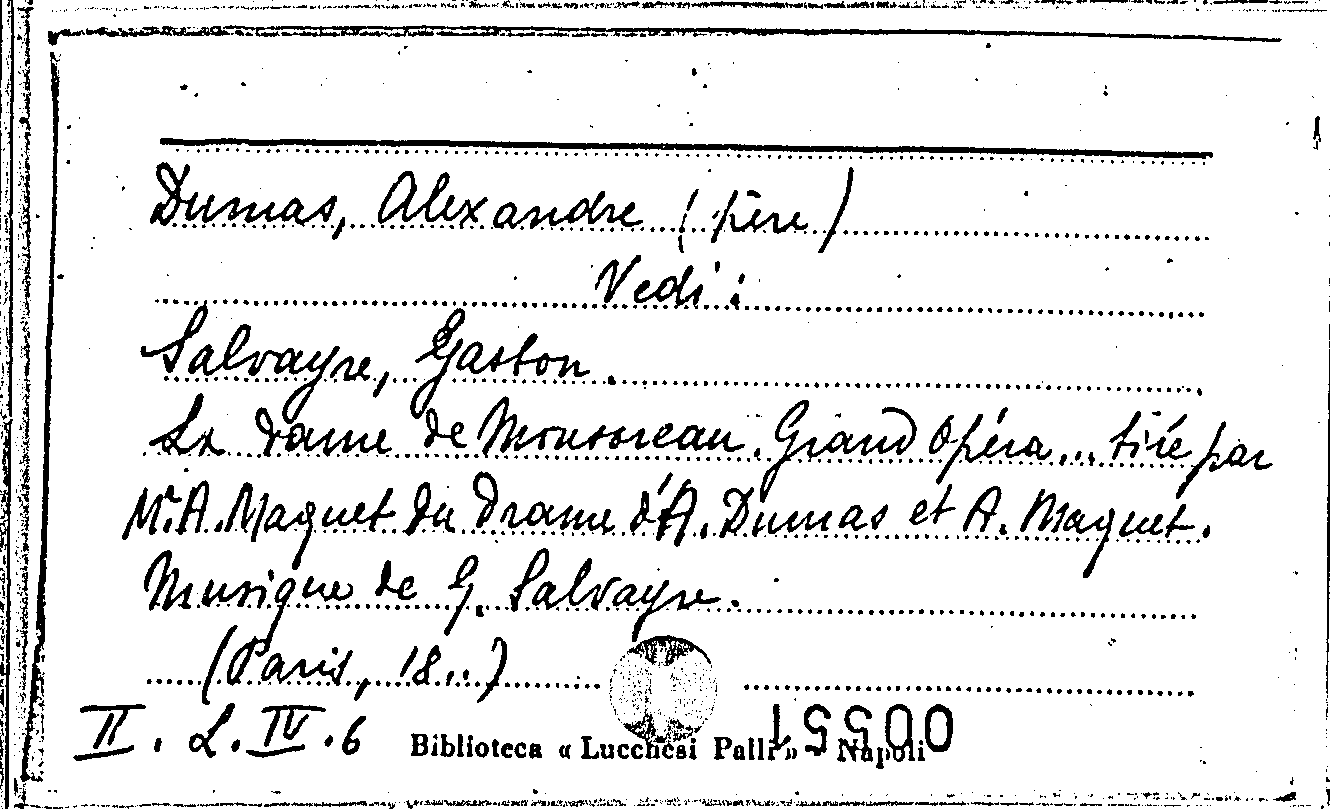 Dumas, Alexandre (père)
Vedi:
Salvayre, Gaston.
La Dame de Monsoreau. Grand Opéra... tiré par
Mr. A. Maquet du Drame d'A. Dumas et A. Maquet.
Musique de G. Salvayre.
(Paris, 18..)
II. L. IV. 6
Biblioteca « Lucchesi Palli » - Napoli
00551